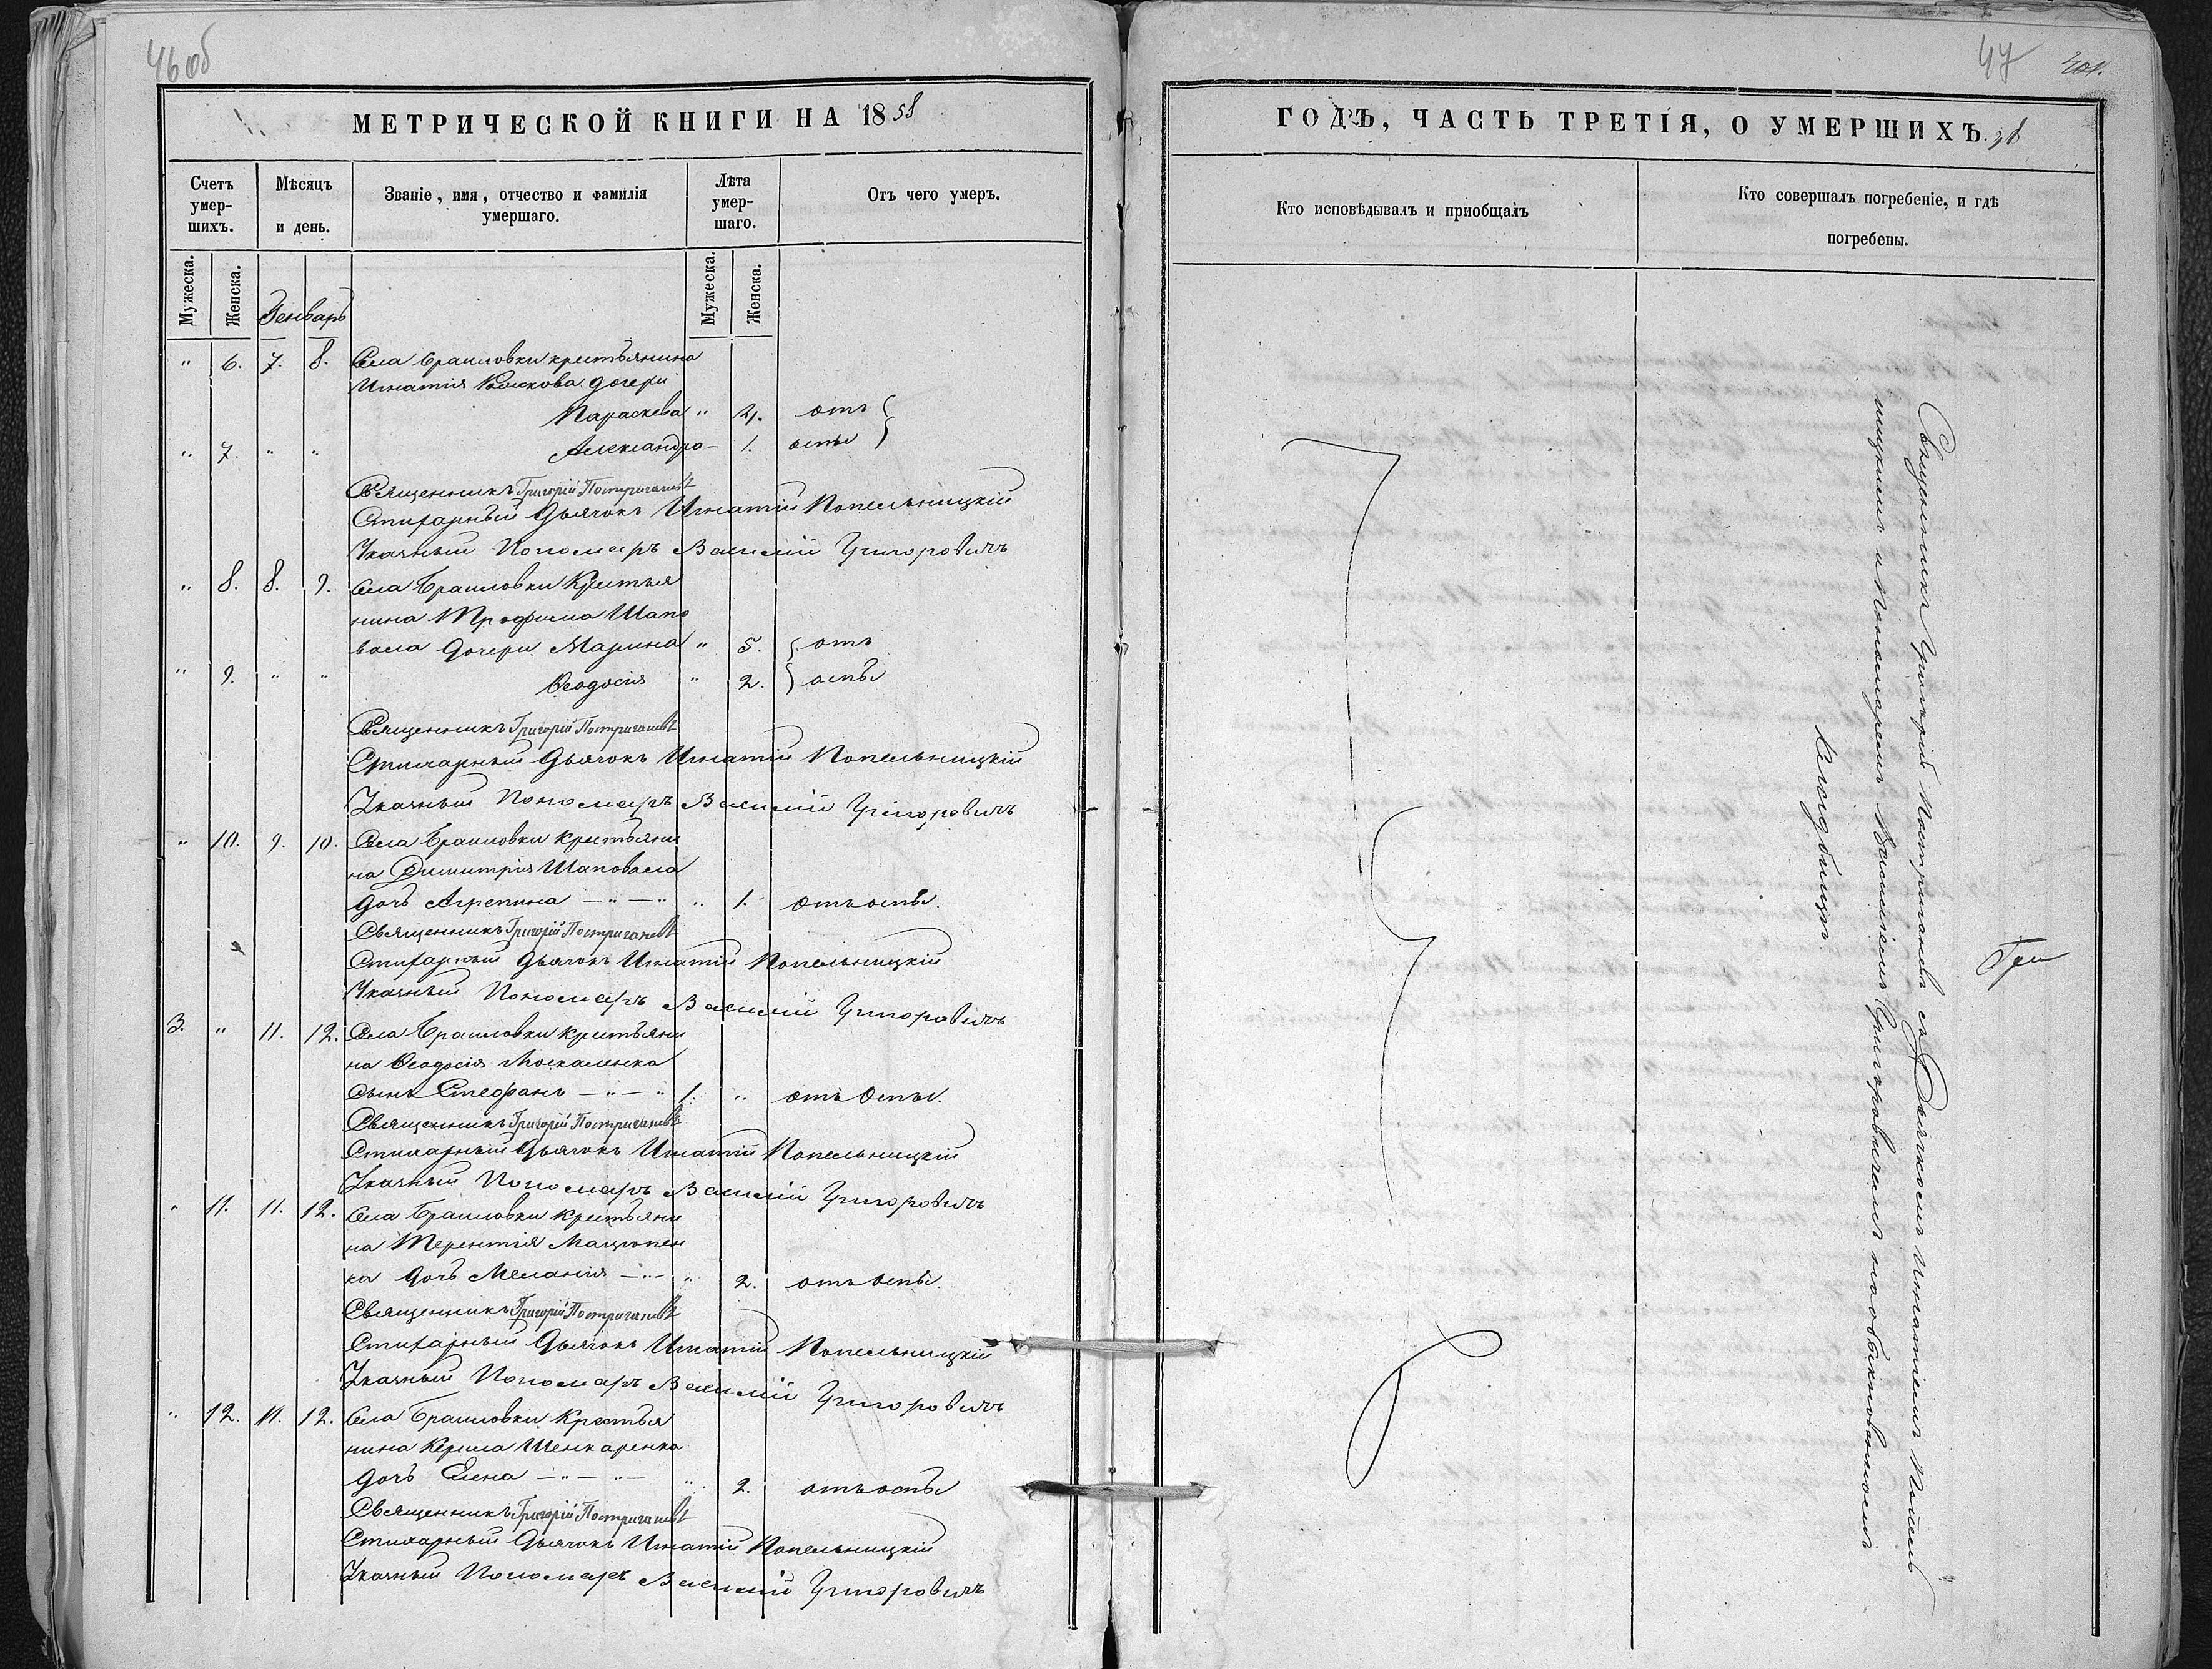 46 об
МЕТРИЧЕСКОЙ КНИГИ НА 1858
Счетъ умер-шихъ.
Мѣсяцъ и день.
Званіе, имя, отчество и фамилія умершаго.
Лѣта умер-шаго.
Отъ чего умеръ.
Мужеска. Женска. Генварь Мужеска. Женска.
" 6. 7. 8. Села Браиловки крестьянина
Игнатія дочери
Параскева " 4. отъ
" 7. " " Александра - 1. оспы
Священникъ Григорій Постригачевъ
Стихарный Дьячокъ Игнатій Попельницкій
Указный Пономарь Василій Григоровичъ
" 8. 8. 9. Села Браиловки Крестья
нина Трофима Шапо
вала дочери Марина " 5. отъ
" 9. " " Ѳеодосія " 2. оспы
Священникъ Григорій Постригачевъ
Стихарный Дьячокъ Игнатій Попельницкій
Указный Пономарь Василій Григоровичъ
" 10. 9. 10. Села Браиловки крестьяни
на Димитрія Шаповала
дочь Агрепина — " — " " 1. отъ оспы.
Священникъ Григорій Постригачевъ
Стихарный Дьячокъ Игнатій Попельницкій
Указный Пономарь Василій Григоровичъ
3. " 11. 12. Села Браиловки крестьяни
на Ѳеодосія Москаленка
сынъ Стефанъ — " — " 1. " отъ Оспы.
Священникъ Григорій Постригачевъ
Стихарный Дьячокъ Игнатій Попельницкій
Указный Пономарь Василій Григоровичъ
" 11. 11. 12. Села Браиловки Крестьяни
на Терентія Мацюпен
ка дочь Меланія — " — " 2. отъ оспы.
Священникъ Григорій Постригачевъ
Стихарный Дьячокъ Игнатій Попельницкій
Указный Пономарь Василій Григоровичъ
" 12. 11. 12. Села Браиловки Крестья
нина Кирила Шенкаренка
дочь Елена — " — " — " 2. отъ оспы
Священникъ Григорій Постригачевъ
Стихарный Дьячокъ Игнатій Попельницкій
Указный Пономарь Василій Григоровичъ
47
ГОДЪ, ЧАСТЬ ТРЕТІЯ, О УМЕРШИХЪ.
Кто исповѣдывалъ и приобщалъ
Кто совершалъ погребеніе, и гдѣ погребены.
Священникъ Григорій Постригачевъ съ Дьячкомъ Игнатіемъ Попель
ницкимъ и Пономаремъ Василіемъ Григоровичемъ на обыкновенномъ
Кладбищѣ.
Гри